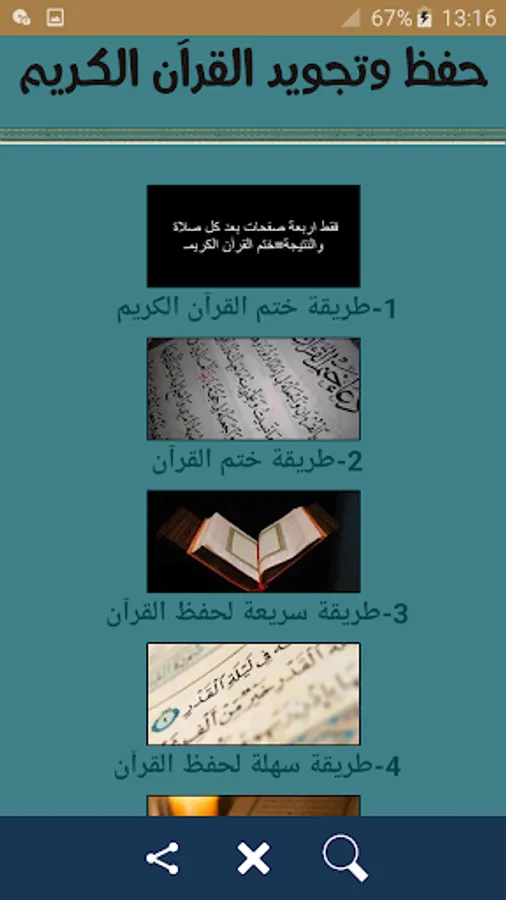 67% 13:16
حفظ وتجويد القرآن الكريم
فقط اربعة صفحات بعد كل صلاة
والنتيجة=ختم القرآن الكريم
1-طريقة ختم القرآن الكريم
2-طريقة ختم القرآن
3-طريقة سريعة لحفظ القرآن
فِي لَيْلَةِ ٱلْقَدْرِ
ٱلْقَدْرِ خَيْرٌ مِّنْ أَلْفِ
4-طريقة سهلة لحفظ القرآن